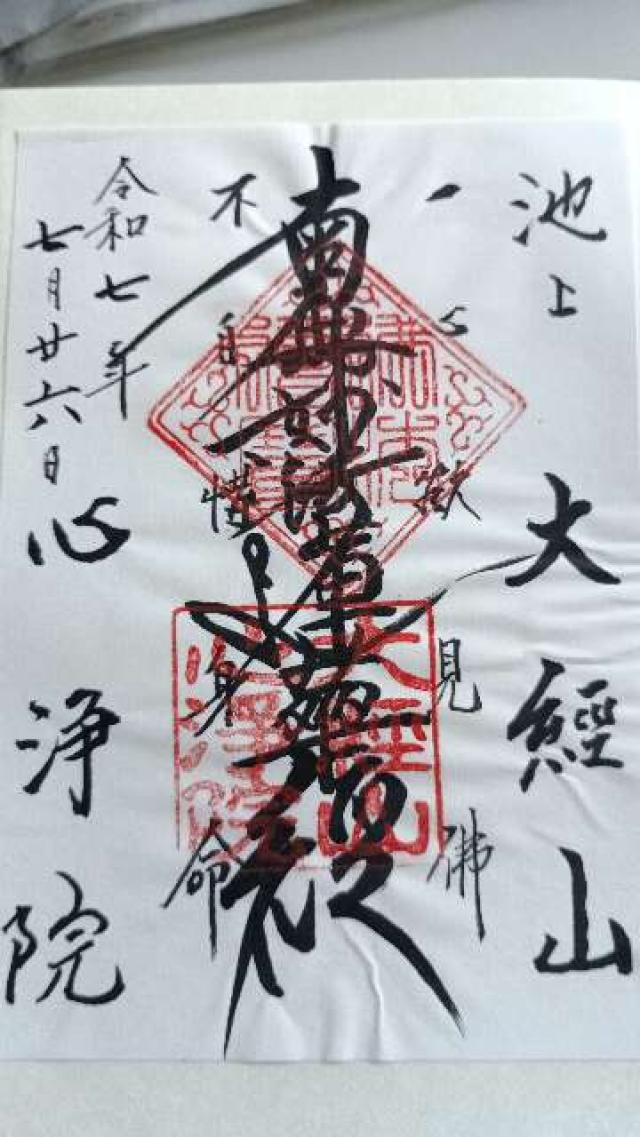 池上
大經山
一心欲見佛
南無妙法蓮華経
不自惜身命
令和七年
七月廿六日
心浄院
大經山